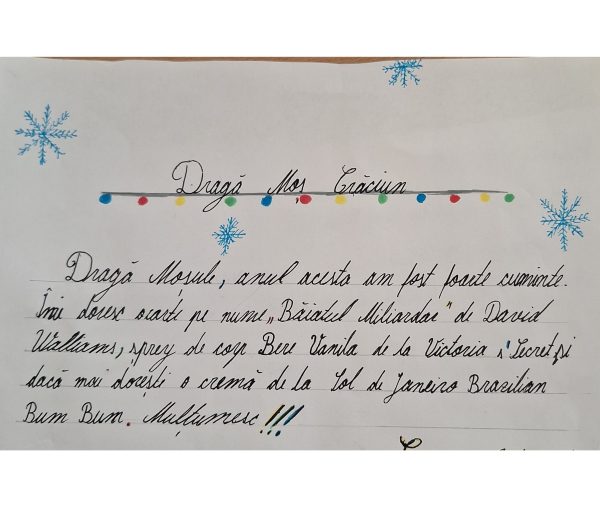 Dragă Moș Crăciun
Dragă Moșule, anul acesta am fost foarte cuminte.
Îmi doresc ocarte pe nume „Băiatul Miliardar" de David
Walliams, sprey de corp Bere Vanila de la Victoria s'Secret și
dacă mai dorești o cremă de la Sol de Janeiro Brazilian
Bum Bum. Mulțumesc !!!